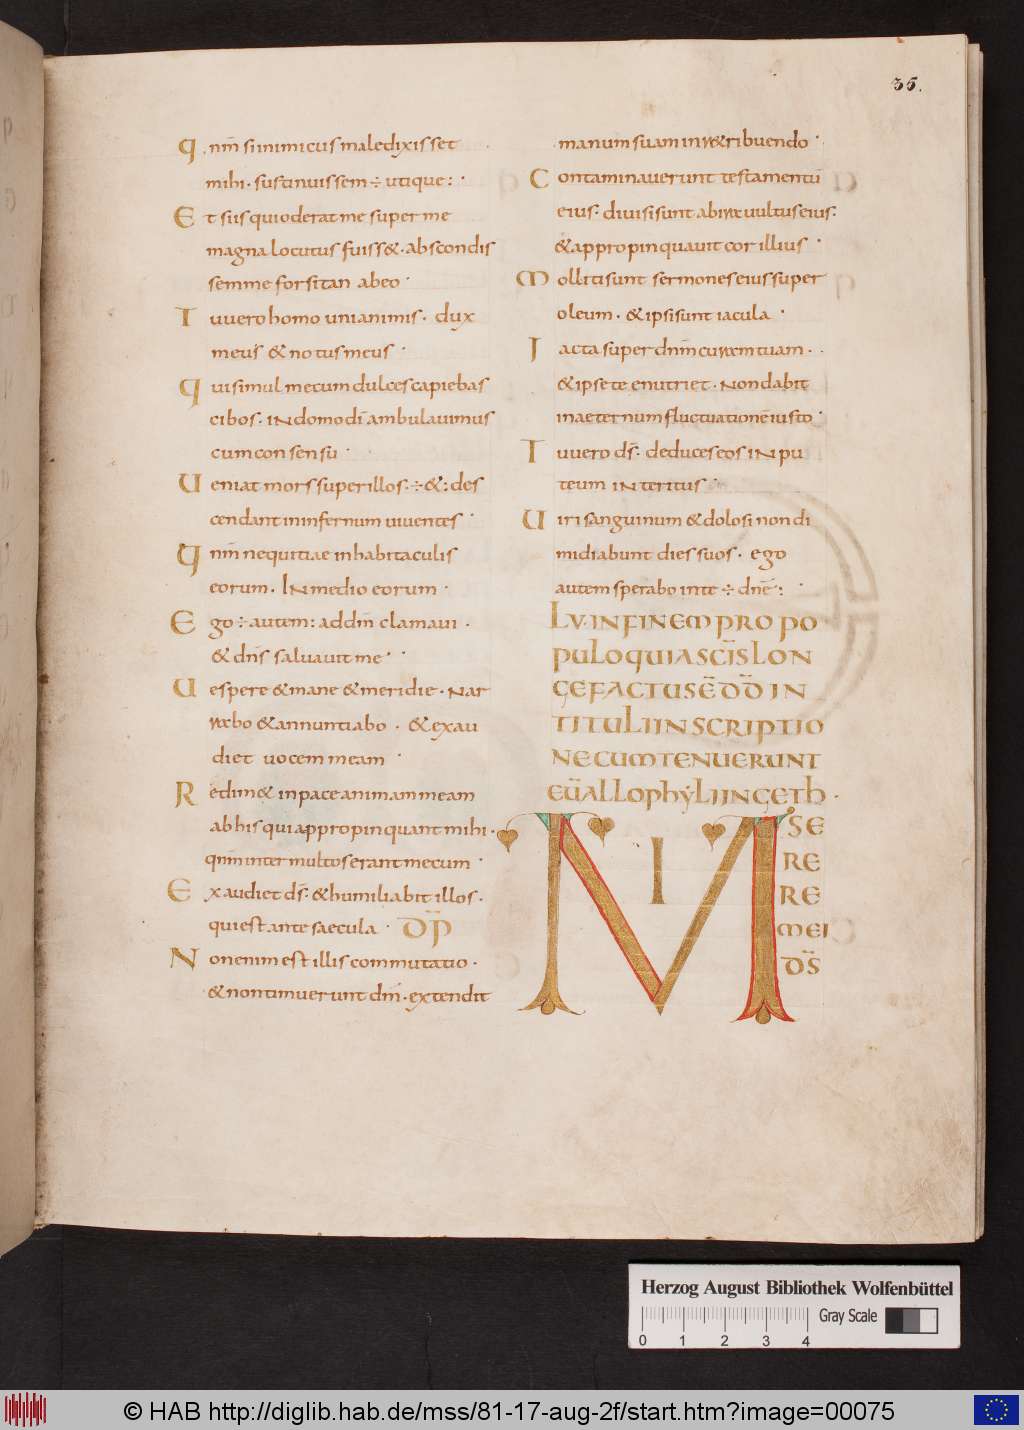 35.
Qnm̄ si inimicus maledixisset
mihi · sustinuissem ÷ utique: ·
Et si is qui oderat me super me
magna locutus fuiss&· abscondis
semme forsitan abeo ·
Tu uero homo unianimis · dux
meus & notus meus ·
Qui simul mecum dulces capiebas
cibos · in domo dī ambulauimus
cum consensu ·
Ueniat mors super illos: ÷ &: des
cendant in infernum uiuentes ·
Qnm̄ nequitiae in habitaculis
eorum · IN medio eorum ·
Ego ÷ autem: ad dnm̄ clamaui ·
& dns̄ saluauit me ·
Uespere & mane & meridie · Nar
rabo & annuntiabo · & exau
diet uocem meam ·
Redim& in pace animam meam
ab his qui appropinquant mihi ·
qnm̄ inter multos erant mecum ·
Exaudiet ds̄: & humiliabit illos ·
qui est ante saecula · DP̄
Non enim est illis commutatio ·
& non timuerunt dm̄ · extendit
manum suam in r&ribuendo ·
Contaminauerunt testamentū
eius: diuisi sunt ab ira uultus eius:
& appropinquauit cor illius ·
Molliti sunt sermones eius super
oleum · & ipsi sunt iacula ·
Iacta super dnm̄ curam tuam ·
& ipse te enutriet · Non dabit
in aeternum fluctuationē iusto ·
Tu uero ds̄: deduces eos IN pu
teum interitus ·
Uiri sanguinum & dolosi non di
midiabunt dies suos · ego
autem sperabo in te ÷ dnē: ·
LV· IN FINEM PRO PO
PULO QUI A SCĪS LON
GE FACTUS Ē DD̄ IN
TITULI INSCRIPTIO
NE CUM TENUERUNT
EŪ ALLOPHYLI IN GETH ·
MISE
RE
RE
MEI
DS̄
Herzog August Bibliothek Wolfenbüttel
0 1 2 3 4 Gray Scale
© HAB http://diglib.hab.de/mss/81-17-aug-2f/start.htm?image=00075